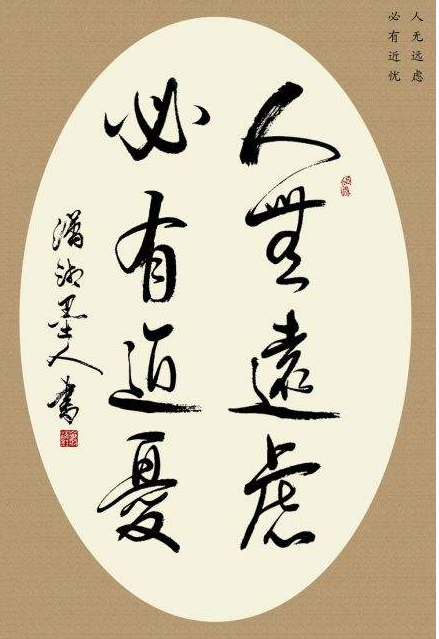 人无远虑
必有近忧
人無遠慮
必有近憂
瀟湘墨人書